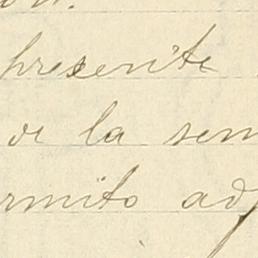 presente
or la sem
rmito ad